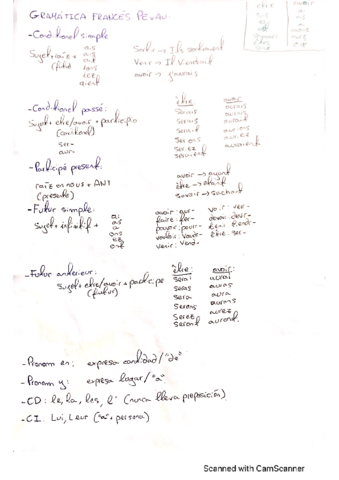 GRAMÁTICA FRANCÉS PEvAU
-Conditionel simple
Sujet + raíz + ais
(futur) ais
ait
ions
iez
aient
Venir → Il viendrait
avoir → j'aurais
-Conditionel passé: être avoir
Sujet + être/avoir + participio serais aurais
(conditionel) serais aurais
serait aurait
ser- serions aurions
aur- seriez auriez
seraient auraient
-Participe présent:
raíz en nous + ANT
(présent)
avoir → ayant
être → étant
savoir → sachant
-Futur simple:
Sujet + infinitif + ai
as
a
ons
ez
ont
avoir: aur- voir: ver-
faire: fer- devoir: devr-
pouvoir: pourr- tenir: tiendr-
vouloir: voudr- être: ser-
venir: viendr-
-Futur anterieur: être: avoir:
Sujet + être/avoir + participe serai aurai
(futur) seras auras
sera aura
serons aurons
serez aurez
seront auront
-Pronom en: expresa cantidad/"de"
-Pronom y: expresa lugar/"a"
-CD: le, la, les, l' (nunca lleva preposición)
-CI: Lui, Leur ("a" + persona)
Scanned with CamScanner